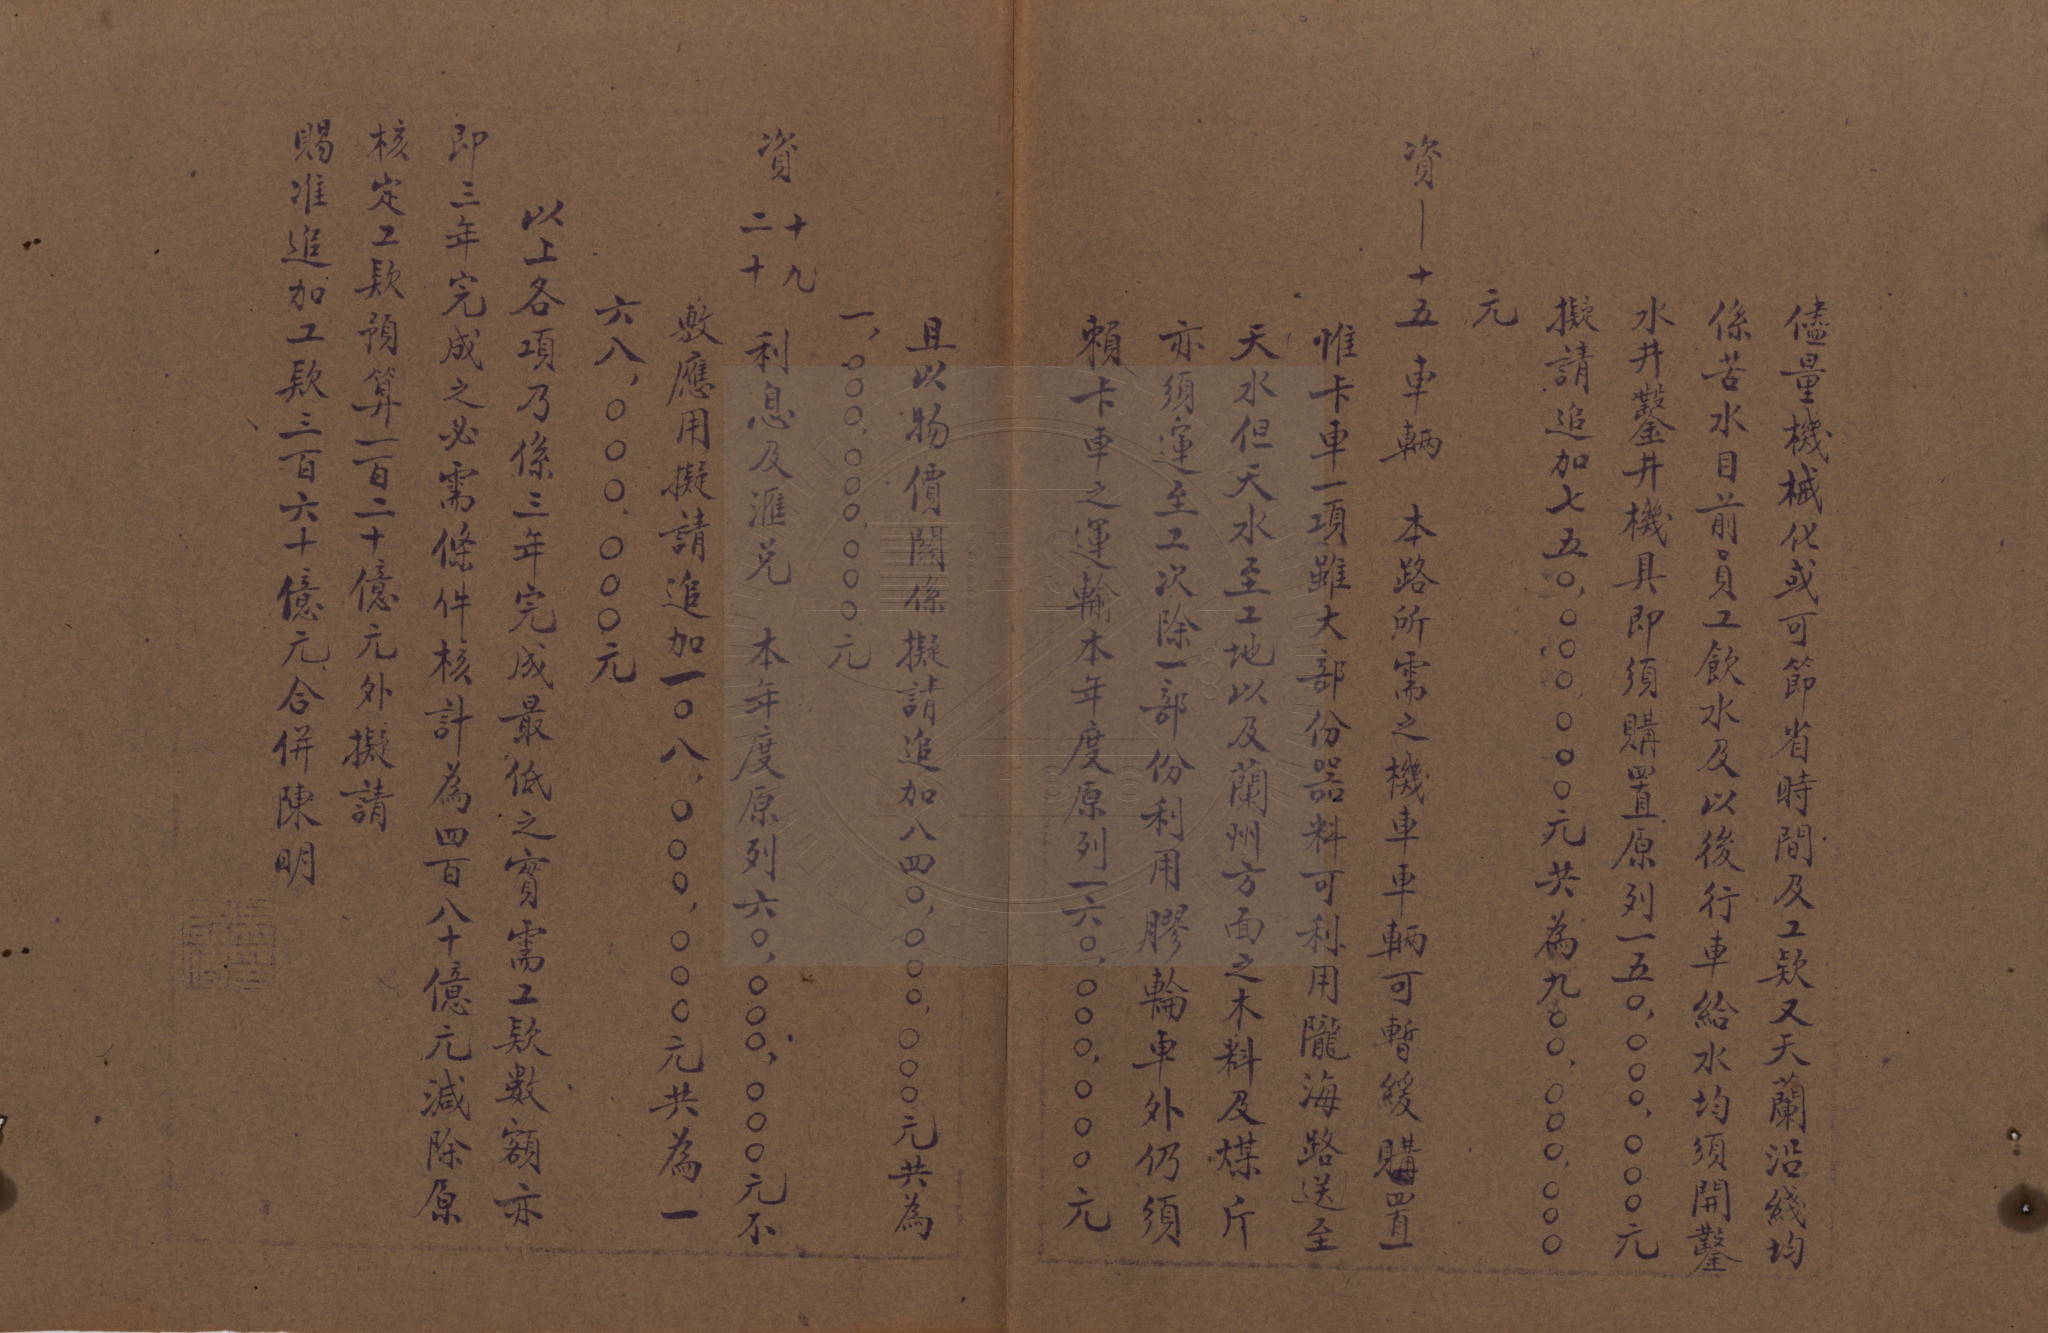 儘量機械化或可節省時間及工欵又天蘭沿綫均
係苦水目前員工飲水及以後行車給水均須開鑿
水井鑿井機具即須購置原列一五〇,〇〇〇,〇〇〇元
擬請追加七五〇,〇〇〇,〇〇〇元共為九〇〇,〇〇〇,〇〇〇
元
資—十五 車輛 本路所需之機車車輛可暫緩購置
惟卡車一項雖大部份器料可利用隴海路送至
天水但天水至工地以及蘭州方面之木料及煤斤
亦須運至工次除一部份利用膠輪車外仍須
賴卡車之運輸本年度原列一六〇,〇〇〇,〇〇〇元
且以物價關係擬請追加八四〇,〇〇〇,〇〇〇元共為
一,〇〇〇,〇〇〇,〇〇〇元
資 十九 二十 利息及滙兑 本年度原列六〇,〇〇〇,〇〇〇元不
敷應用擬請追加一〇八,〇〇〇,〇〇〇元共為一
六八,〇〇〇,〇〇〇元
以上各項乃係三年完成最低之實需工欵數額亦
即三年完成之必需條件核計為四百八十億元減除原
核定工欵預算一百二十億元外擬請
賜准追加工欵三百六十億元合併陳明